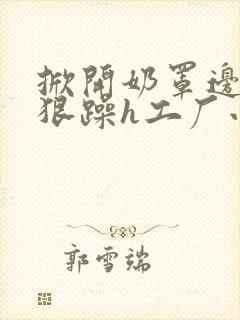 掀開奶罩邊
狠躁h工厂
郭雪端